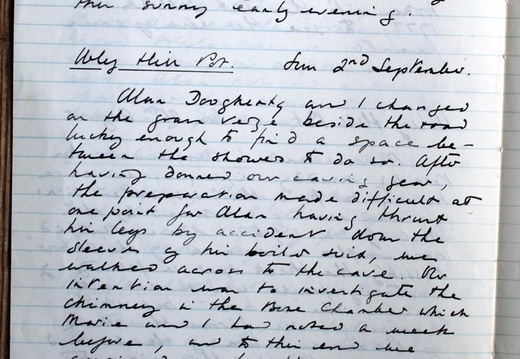 this sunny early evening.
Uley Hill Pot. Sun 2nd September.
Alan Dougherty and I changed
on the grass verge beside the road
lucky enough to find a space be-
tween the showers to do so. After
having donned our caving gear,
the preparation made difficult at
one point for Alan having thrust
his legs by accident down the
sleeves of his boiler suit, we
walked across to the cave. Our
intention was to investigate the
chimney in the Bone Chamber which
Marie and I had noted a week
before, and to this end we